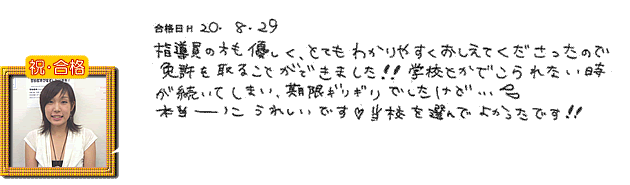 合格日 H 20. 8. 29
指導員の方も優しく、とてもわかりやすくおしえてくださったので
免許を取ることができました!! 学校とかでこられない時
が続いてしまい、期限ギリギリでしたけど…
本当ーにうれしいです♡当校を選んでよかったです!!
祝・合格